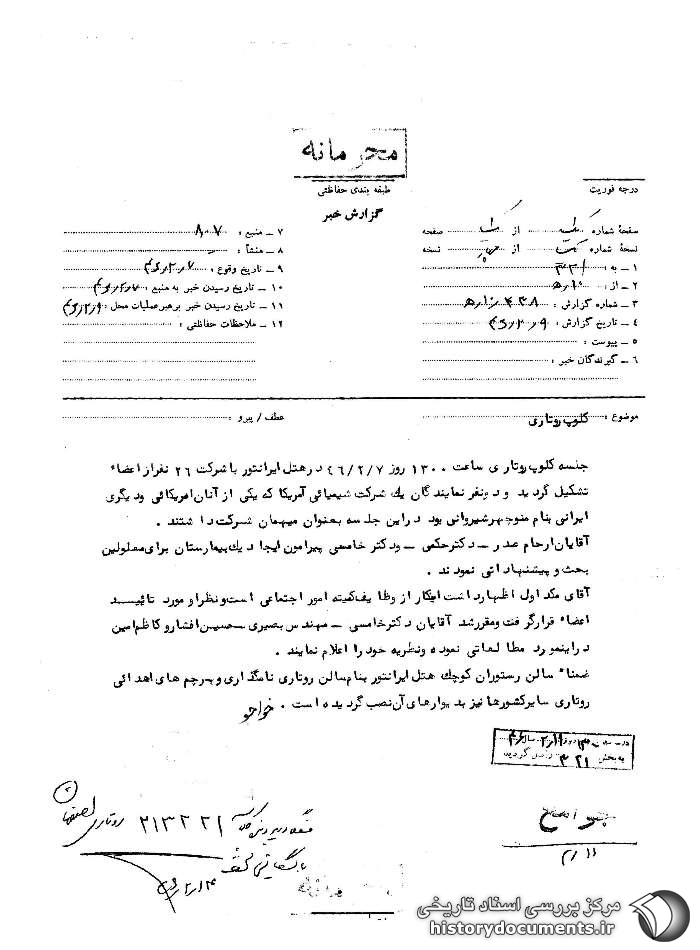 محرمانه
طبقه بندی حفاظتی
درجه فوریت
گزارش خبر
صفحهٔ شماره یک از یک صفحه
نسخهٔ شماره از نسخه
۱ – به : ۳۲۱
۲ – از : ۱۰/ه
۳ – شماره گزارش :
۴ – تاریخ گزارش : ۴۶/۲/۹
۵ – پیوست :
۶ – گیرندگان خبر :
۷ – منبع : ۸۰۷
۸ – منشأ :
۹ – تاریخ وقوع : ۴۶/۲/۷
۱۰ – تاریخ رسیدن خبر به منبع : ۴۶/۲/۷
۱۱ – تاریخ رسیدن خبر برهبر عملیات محل : ۴۶/۲/۹
۱۲ – ملاحظات حفاظتی :
موضوع : کلوپ روتاری
عطف / پیرو :
جلسه کلوپ روتاری ساعت ۱۳۰۰ روز ۴۶/۲/۷ در هتل ایرانتور با شرکت ۲۶ نفر از اعضاء
تشکیل گردید و دو نفر نمایندگان یك شرکت شیمیائی آمریکا که یکی از آنان امریکائی و دیگری
ایرانی بنام منوچهر شیروانی بود در این جلسه بعنوان میهمان شرکت داشتند .
آقایان ارحام صدر – دکتر حکمی – و دکتر خامسی پیرامون ایجاد یك بیمارستان برای معلولین
بحث و پیشنهاداتی نمودند .
آقای مکداول اظهار داشت اینکار از وظایف کمیته امور اجتماعی است و نظر او مورد تائید
اعضاء قرار گرفت و مقرر شد آقایان دکتر خامسی – مهندس بصیری – حسین افشار و کاظم امین
در اینمورد مطالعاتی نموده و نظریه خود را اعلام نمایند .
ضمناً سالن رستوران کوچك هتل ایرانتور بنام سالن روتاری نامگذاری و پرچم های اهدائی
روتاری سایر کشورها نیز بدیوارهای آن نصب گردیده است . خواجو
به بخش ۳۲۱ واصل گردید
۲
۲۱۳۲۲۱ روتاری اصفهان
بایگانی شود
۲/۱۱
مرکز بررسی اسناد تاریخی
historydocuments.ir